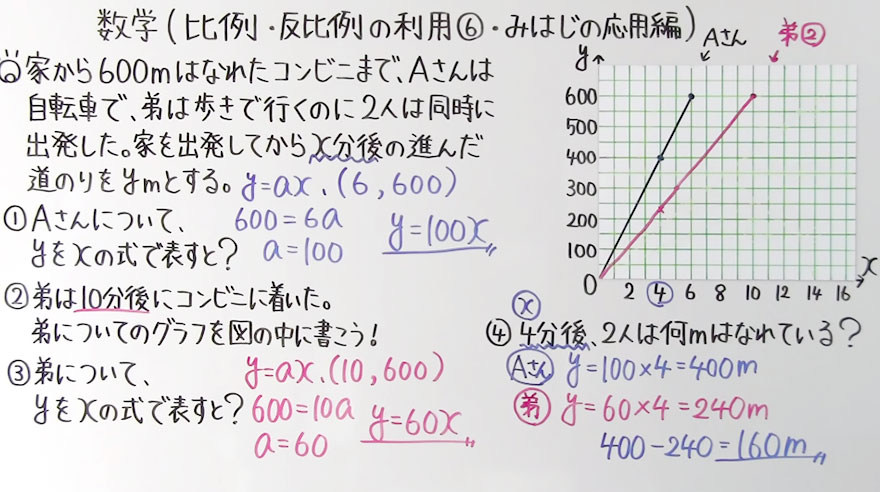 数学(比例・反比例の利用⑥・みはじの応用編)
問 家から600mはなれたコンビニまで、Aさんは
自転車で、弟は歩きで行くのに2人は同時に
出発した。家を出発してからx分後の進んだ
道のりをymとする。y=ax、(6,600)
①Aさんについて、
yをxの式で表すと?
600=6a
a=100
y=100x
②弟は10分後にコンビニに着いた。
弟についてのグラフを図の中に書こう!
③弟について、
yをxの式で表すと?
y=ax、(10,600)
600=10a
a=60
y=60x
Aさん
弟②
y
600
500
400
300
200
100
0
2 4 6 8 10 12 14 16
x
x
④4分後、2人は何mはなれている?
Aさん y=100×4=400m
弟 y=60×4=240m
400-240=160m